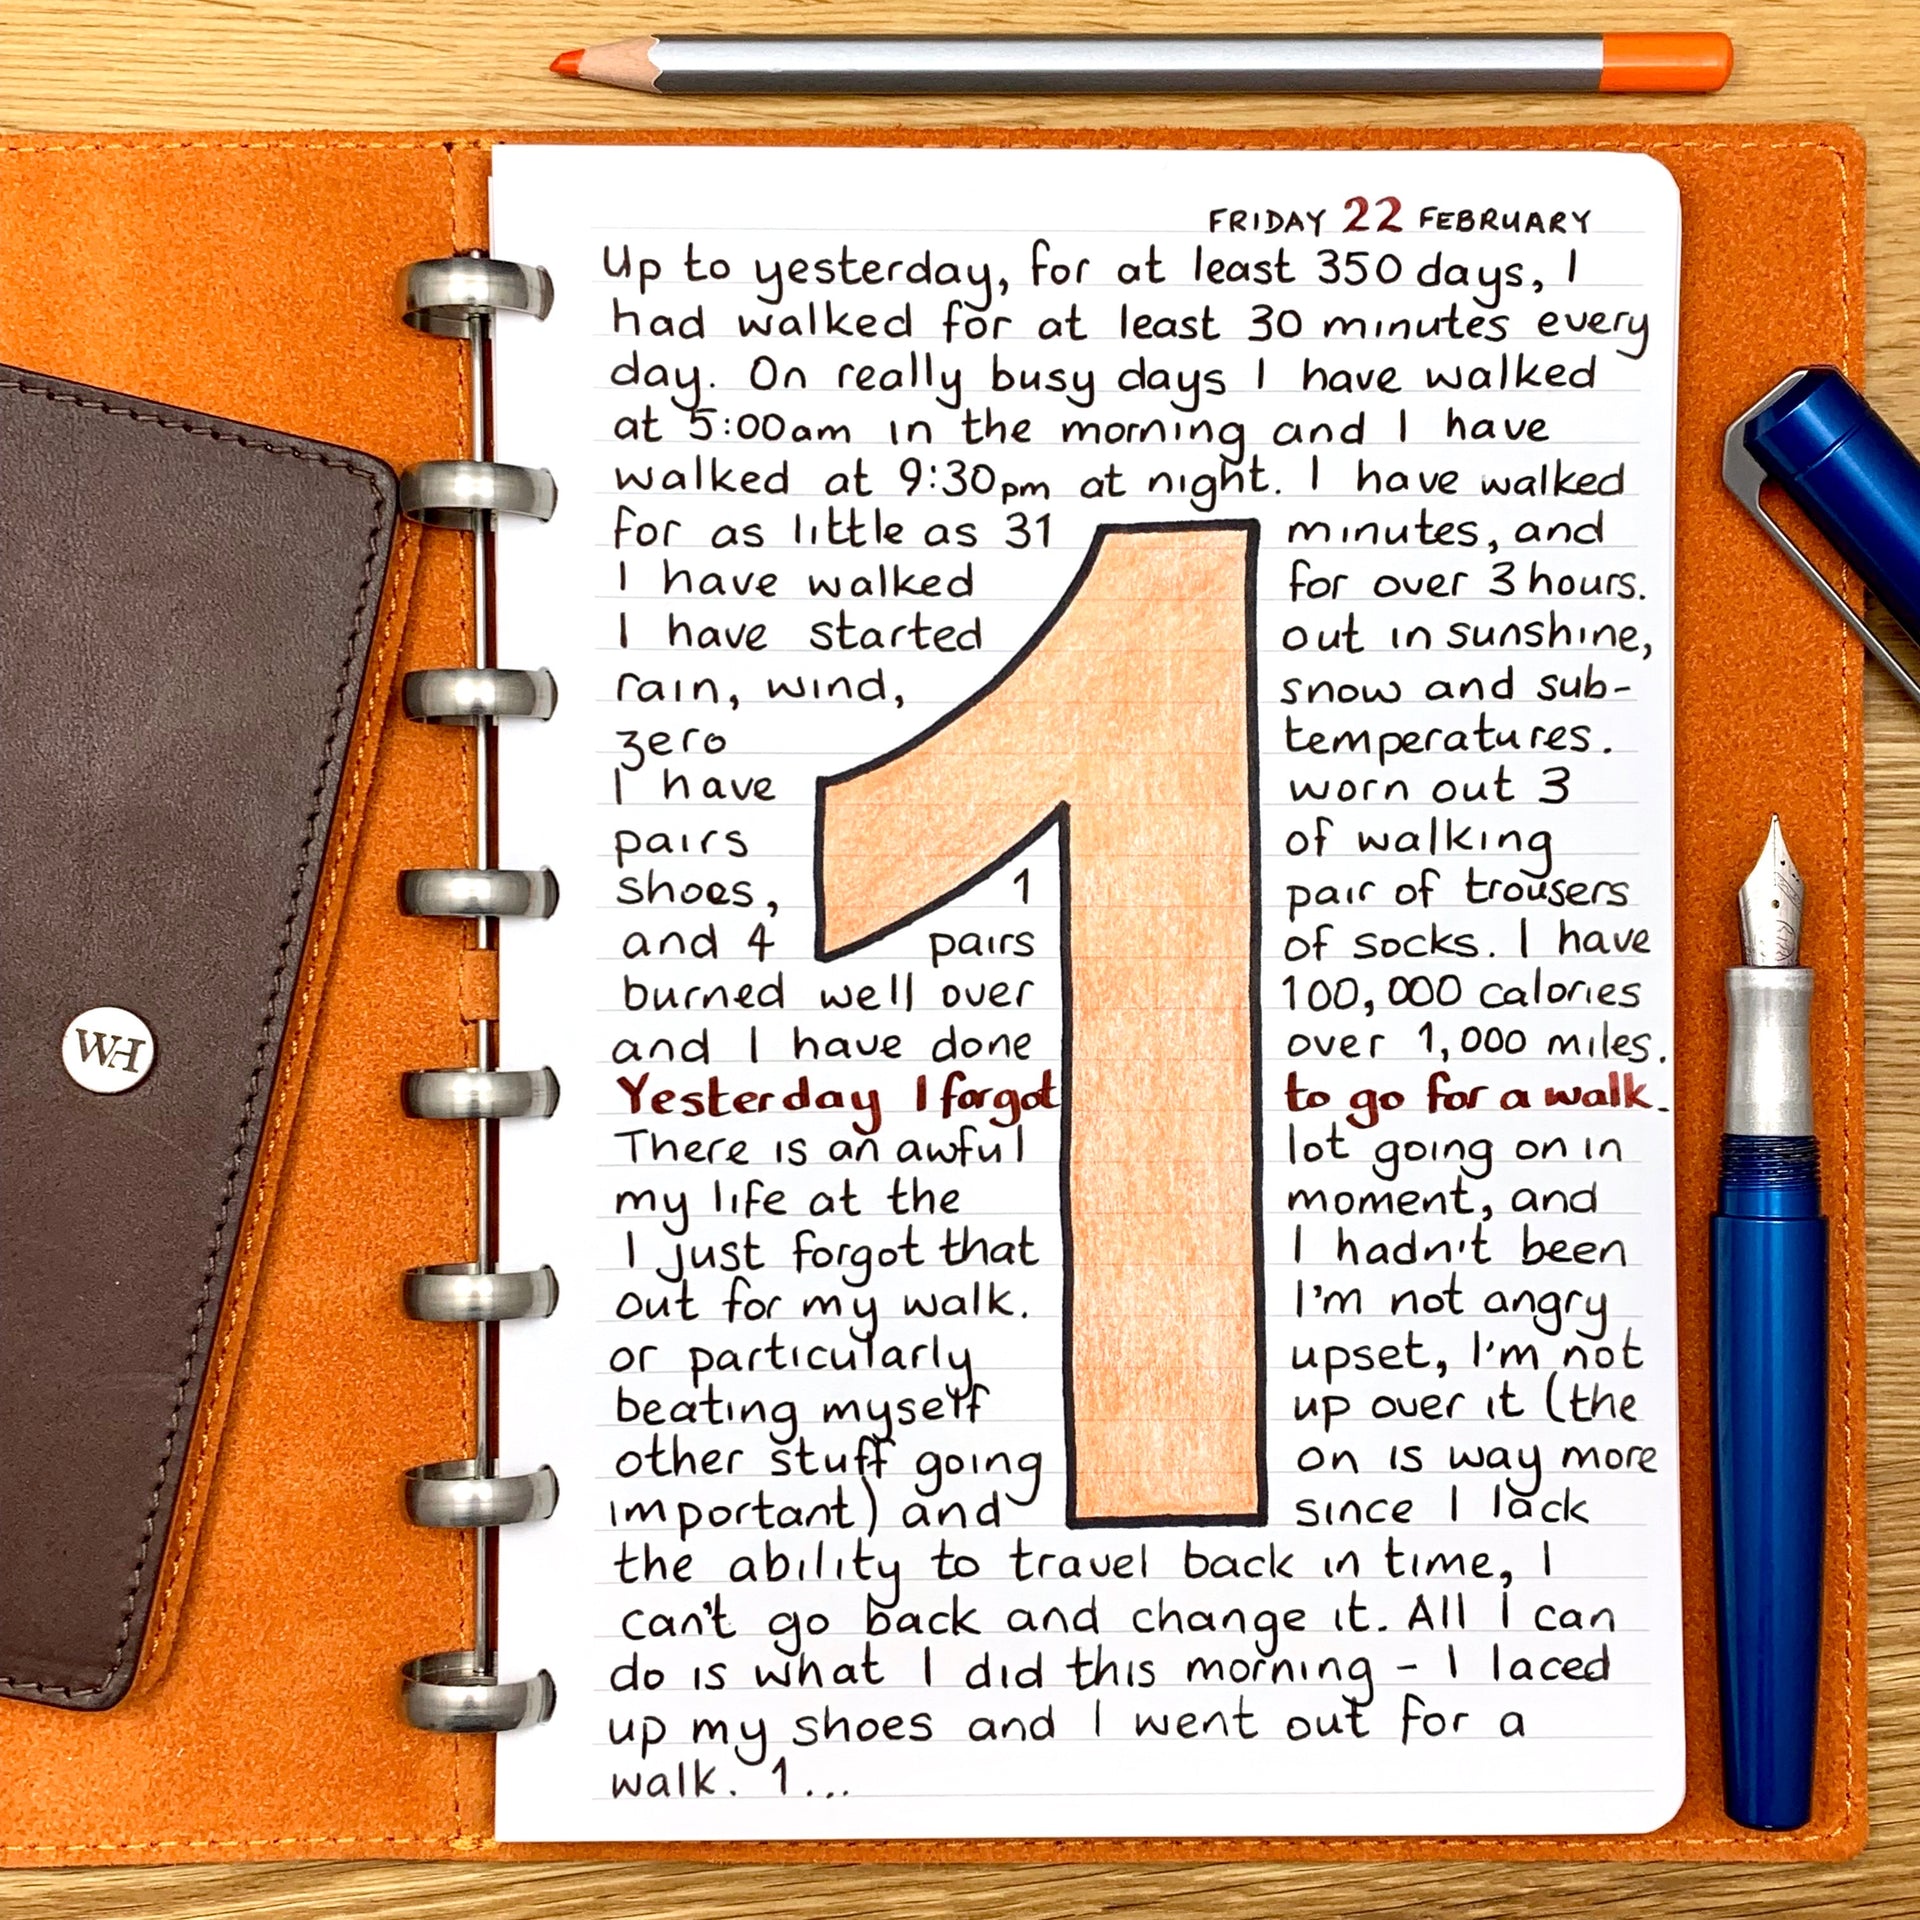 FRIDAY 22 FEBRUARY
Up to yesterday, for at least 350 days, I
had walked for at least 30 minutes every
day. On really busy days I have walked
at 5:00am in the morning and I have
walked at 9:30pm at night. I have walked
for as little as 31 minutes, and
I have walked for over 3 hours.
I have started out in sunshine,
rain, wind, snow and sub-
zero temperatures.
I have worn out 3
pairs of walking
shoes, 1 pair of trousers
and 4 pairs of socks. I have
burned well over 100,000 calories
and I have done over 1,000 miles.
Yesterday I forgot to go for a walk.
There is an awful lot going on in
my life at the moment, and
I just forgot that I hadn't been
out for my walk. I'm not angry
or particularly upset, I'm not
beating myself up over it (the
other stuff going on is way more
important) and since I lack
the ability to travel back in time, I
can't go back and change it. All I can
do is what I did this morning - I laced
up my shoes and I went out for a
walk. 1...
1
WH